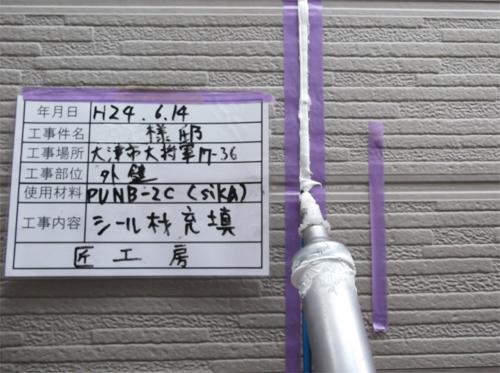 年月日 H24.6.14
工事件名 様邸
工事場所 大津市大将軍
工事部位 外壁
使用材料 PUNB-2C (sikA)
工事内容 シール材充填
匠工房